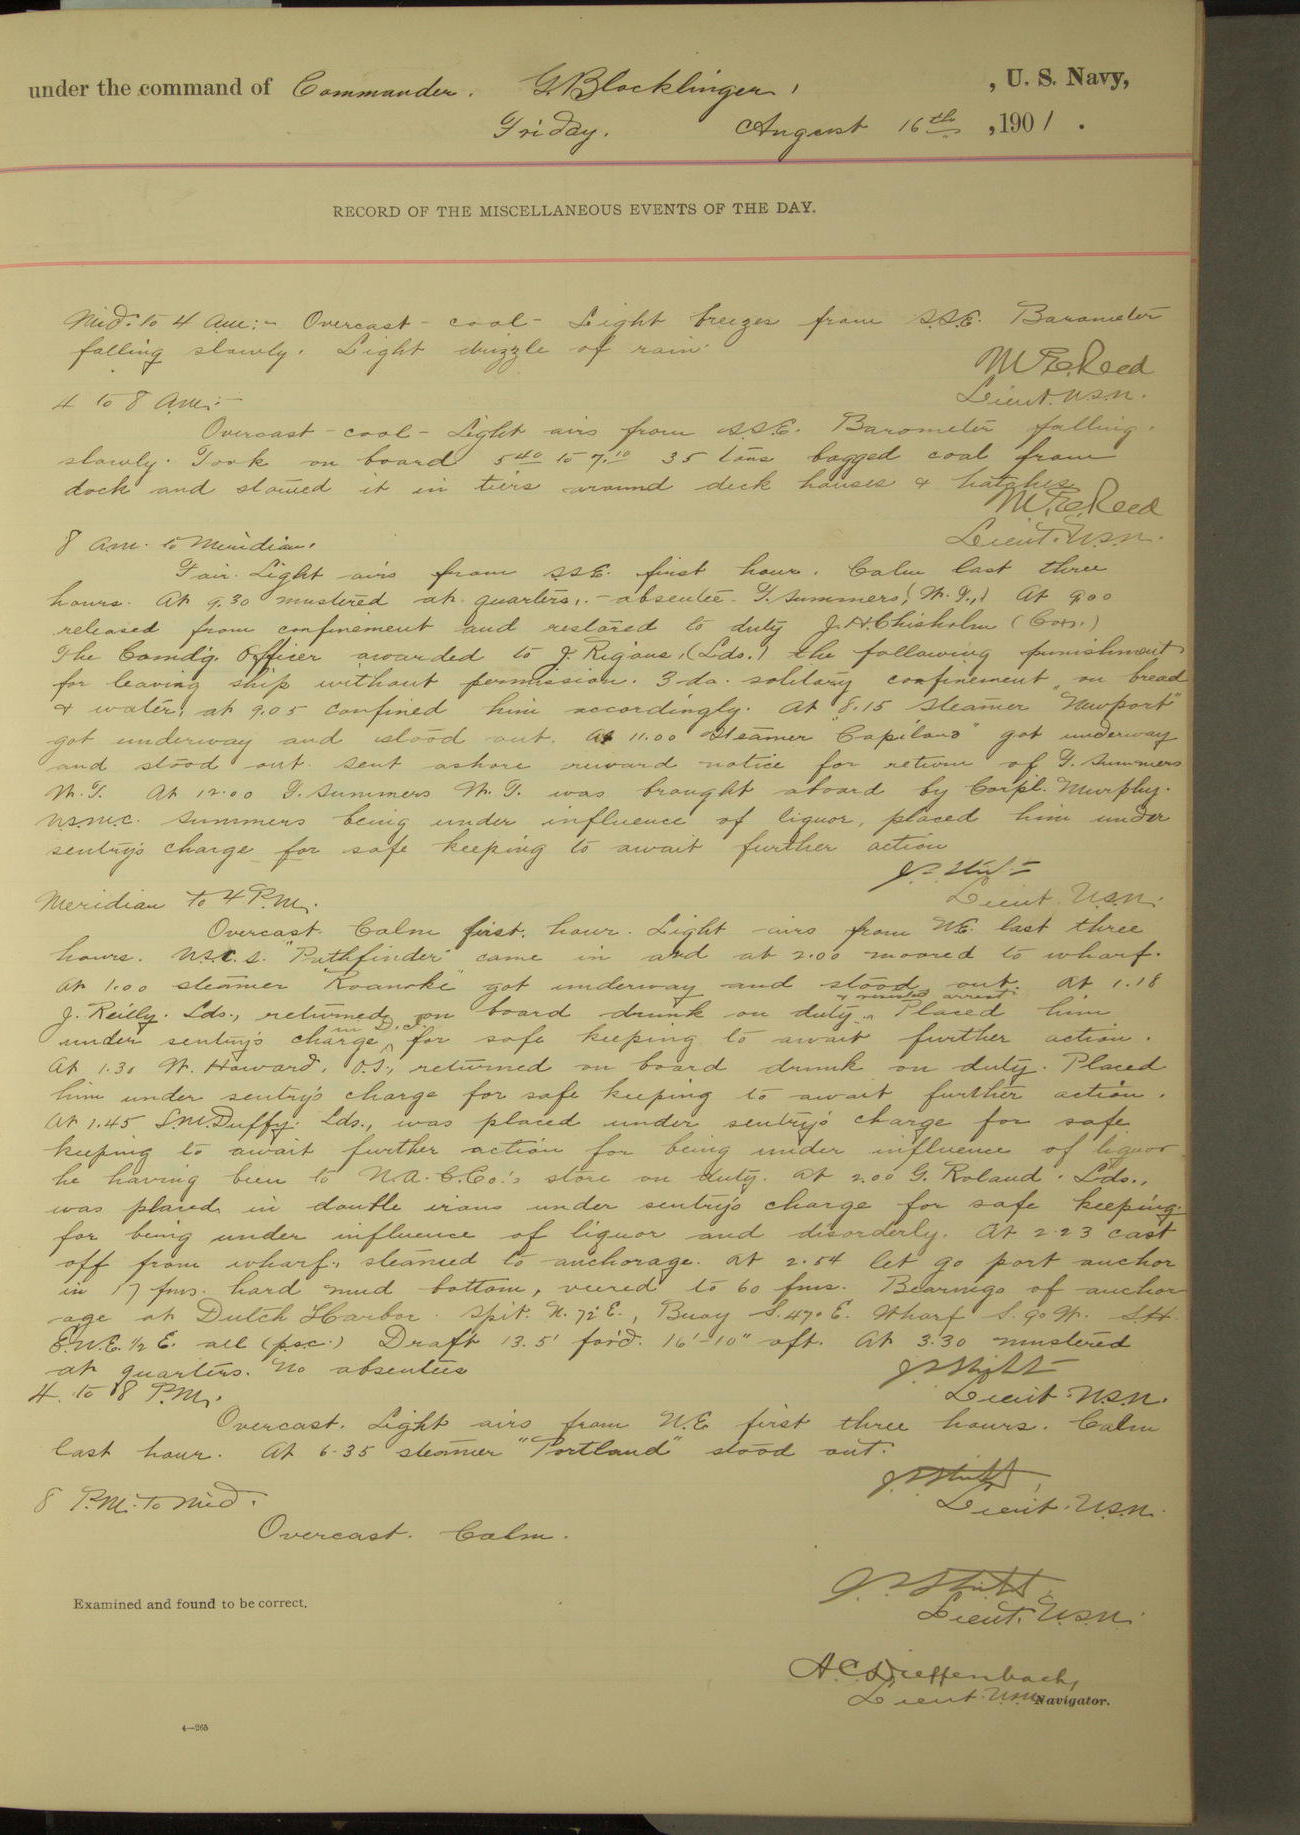 under the command of Commander. G. Blocklinger, , U. S. Navy,
Friday. August 16th , 1901 .
RECORD OF THE MISCELLANEOUS EVENTS OF THE DAY.
Mid. to 4 am:- Overcast - cool - Light breezes from S.S.E. Barometer
falling slowly. Light drizzle of rain.
M. E. Reed
Lieut. U.S.N.
4 to 8 am:-
Overcast - cool - Light airs from S.S.E. Barometer falling
slowly. Took on board 5 40 to 7.10 35 tons bagged coal from
dock and stowed it in tiers around deck houses & hatches.
M. E. Reed
Lieut. U.S.N.
8 am. to Meridian.
Fair. Light airs from S.S.E. first hour. Calm last three
hours. At 9.30 mustered at quarters, - absentee - T. Summers, (W.T.,) At 9.00
released from confinement and restored to duty J. H. Chisholm (Cox.)
The Comdg. Officer awarded to J. Rigaus, (Lds.) the following punishment
for leaving ship without permission. 3 da. solitary confinement, on bread
& water; at 9.05 confined him accordingly. At 8.15 steamer "Newport"
got underway and stood out. At 11.00 steamer "Capilano" got underway
and stood out. Sent ashore reward notice for return of T. Summers
W.T. At 12.00 T. Summers W.T. was brought aboard by Corpl. Murphy.
U.S.M.C. Summers being under influence of liquor, placed him under
sentry's charge for safe keeping to await further action
Lieut. U.S.N.
Meridian to 4 P.M.
Overcast. Calm first hour. Light airs from N.E. last three
hours. U.S.C.S. "Pathfinder" came in and at 2.00 moored to wharf.
At 1.00 steamer "Roanoke" got underway and stood out. At 1.18
& resisted arrest
J. Reilly. Lds., returned on board drunk on duty. Placed him
in D.I.
under sentry's charge for safe keeping to await further action.
At 1.30 W. Howard, O.S., returned on board drunk on duty. Placed
him under sentry's charge for safe keeping to await further action.
At 1.45 S. McDuffy. Lds., was placed under sentry's charge for safe
keeping to await further action for being under influence of liquor
he having been to N.A.C.Co.'s store on duty. At 2.00 G. Roland. Lds.,
was placed in double irons under sentry's charge for safe keeping
for being under influence of liquor and disorderly. At 2.23 cast
off from wharf, steamed to anchorage. At 2.54 let go port anchor
in 17 fms. hard mud bottom, veered to 60 fms. Bearings of anchor-
age at Dutch Harbor. Spit. N. 72° E., Buoy S. 47° E. Wharf S. 9° W.
E.N.E. 1/2 E. all (p.s.c.) Draft 13.5' for'd. 16'-10" aft. At 3.30 mustered
at quarters. No absentees
Lieut. U.S.N.
4. to 8 P.M.
Overcast. Light airs from N.E. first three hours. Calm
last hour. At 6.35 steamer "Portland" stood out.
Lieut. U.S.N.
8 P.M. to Mid.
Overcast. Calm.
Lieut. U.S.N.
Examined and found to be correct.
A. C. Dieffenbach,
Lieut. U.S.N. Navigator.
4—265